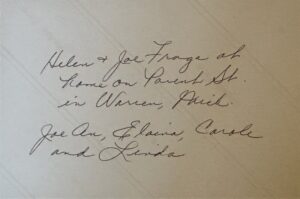 Helen & Joe Fraga at
home on Parent St.
in Warren, Mich.
Joe An, Elaina, Carole
and Linda